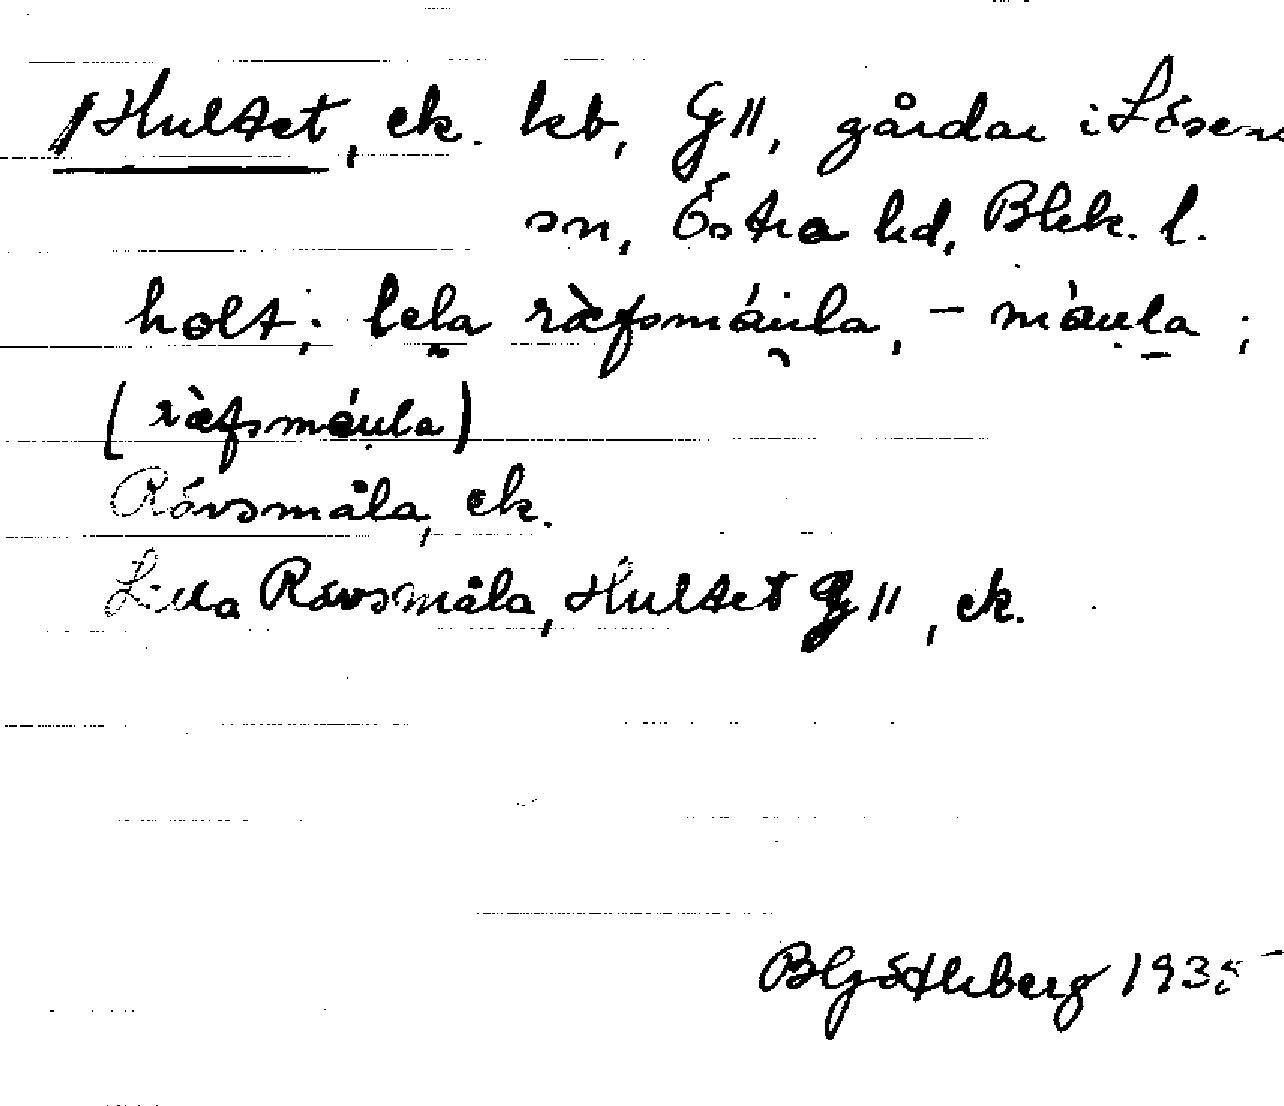 Hultet, ek. kb, G11, gårdar i Lösens
sn, Östra hd, Blek. l.
holt; lela ràfsmáula, - máula ;
(ràfsmáula)
Rävsmåla, ek.
Lilla Rävsmåla, Hultet G11, ek.
B Götlheberg 1935